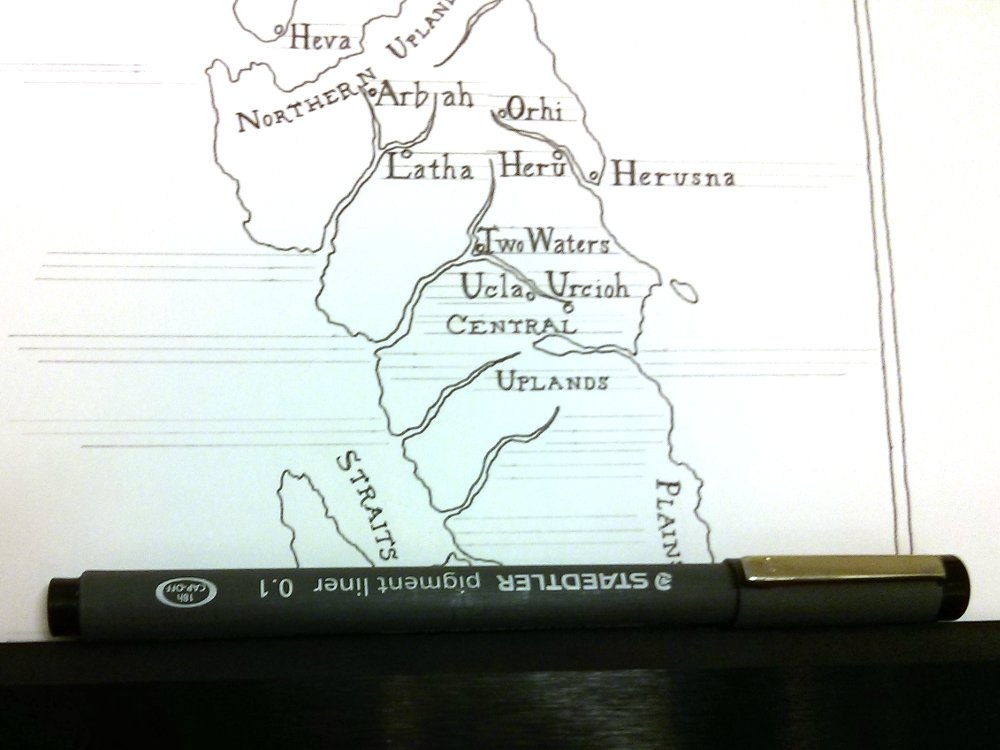 Heva
NORTHERN UPLAN
Arbjah
Orhi
Latha
Heru
Herusna
Two Waters
Ucla
Urcioh
CENTRAL
UPLANDS
STRAITS
PLAINS
STAEDTLER pigment liner 0.1
18h
CAP-OFF